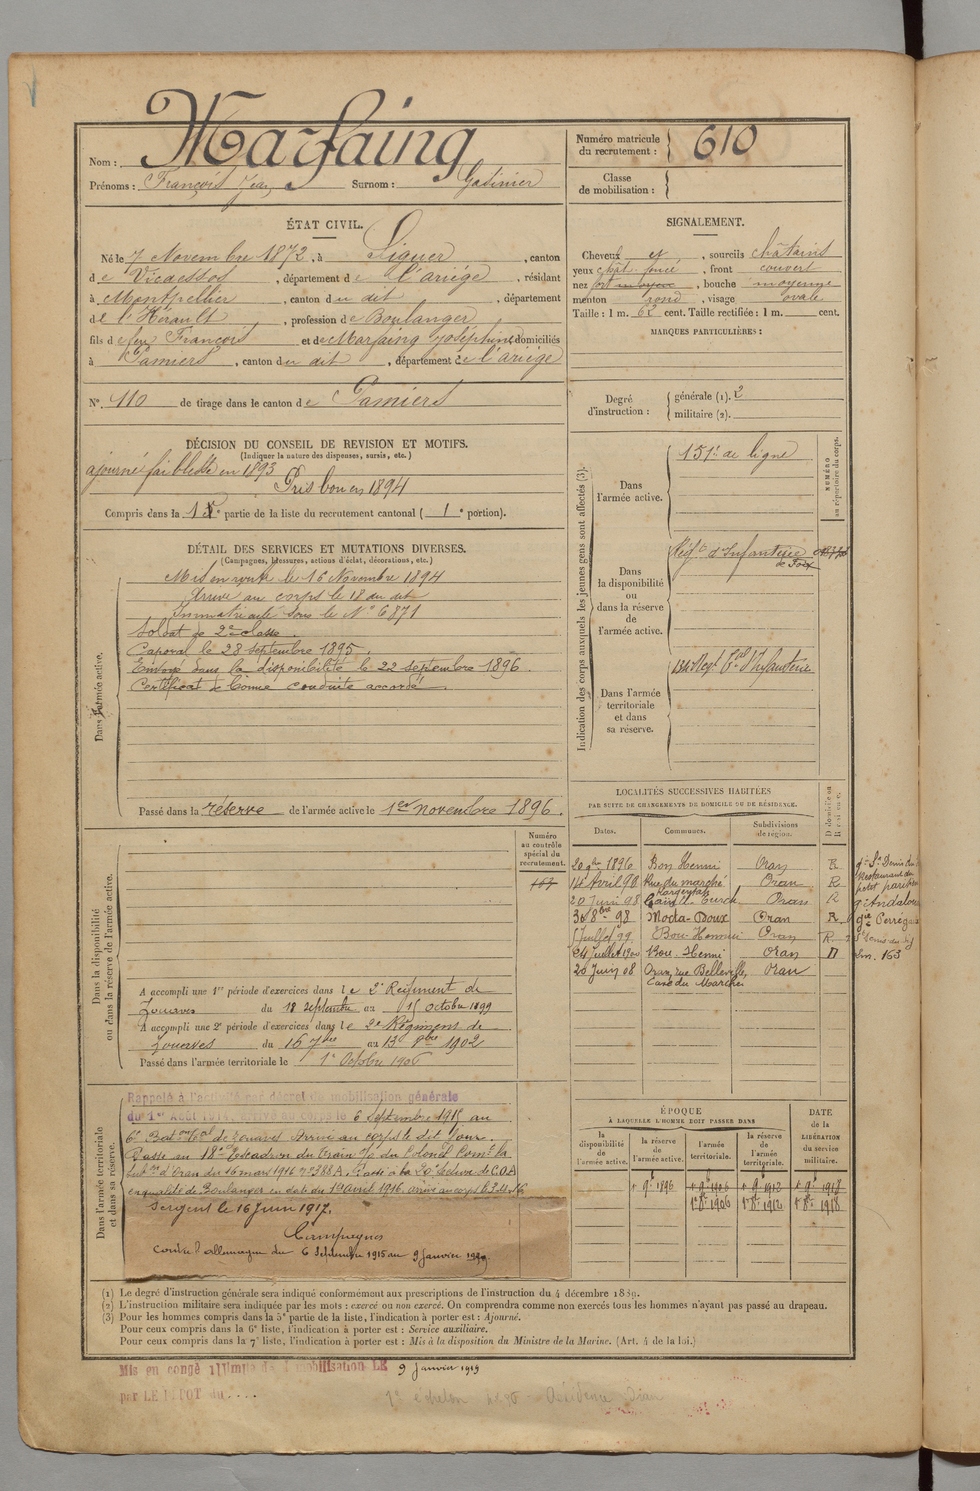 Nom : Marfaing
Prénoms : François Jean Surnom : Gadinier
Numéro matricule du recrutement : 610
Classe de mobilisation :
ÉTAT CIVIL.
Né le 7 Novembre 1872, à Siguer, canton
de Vicdessos, département de l'ariège, résidant
à Montpellier, canton du dit, département
de l'Hérault, profession de Boulanger
fils de feu François et de Marfaing Joséphine domiciliés
à Pamiers, canton du dit, département de l'ariège
N° 110 de tirage dans le canton de Pamiers
SIGNALEMENT.
Cheveux et, sourcils châtains
yeux chât. foncé, front couvert
nez fort moyen, bouche moyenne
menton rond, visage ovale
Taille : 1 m. 62 cent. Taille rectifiée : 1 m. cent.
MARQUES PARTICULIÈRES :
Degré d'instruction : générale (1). 2
militaire (2).
DÉCISION DU CONSEIL DE REVISION ET MOTIFS.
(Indiquer la nature des dispenses, sursis, etc.)
ajourné faiblesse en 1893
Pris bon en 1894
Compris dans la 1e partie de la liste du recrutement cantonal ( 1e portion).
DÉTAIL DES SERVICES ET MUTATIONS DIVERSES.
(Campagnes, blessures, actions d'éclat, décorations, etc.)
Dans l'armée active.
Mis en route le 16 Novembre 1894
Arrivé au corps le 18 du dit
Immatriculé sous le N° 6871
Soldat de 2e classe.
Caporal le 28 septembre 1895.
Envoyé dans la disponibilité le 22 septembre 1896.
Certificat de bonne conduite accordé
Passé dans la réserve de l'armée active le 1er novembre 1896.
Indication des corps auxquels les jeunes gens sont affectés (3).
NUMÉRO au répertoire du corps.
Dans l'armée active.
151e de ligne
Dans la disponibilité ou dans la réserve de l'armée active.
Régt d'Infanterie
de Foix
Dans l'armée territoriale et dans sa réserve.
134e Regt Tal d'Infanterie
LOCALITÉS SUCCESSIVES HABITÉES
PAR SUITE DE CHANGEMENTS DE DOMICILE OU DE RÉSIDENCE.
Dates. Communes. Subdivisions de région. D domicile ou R résidence.
20 9bre 1896 Bou Henni Oran R
14 Avril 98 Rue du marché Oran R
20 Juin 98 Oran R
30 8bre 98 Mocta-Douz Oran R
Juillet 99 Bou-Henni Oran R
24 Juillet 1900 Bou Henni Oran D
20 Juin 08 Oran, rue Belleville, Oran
Numéro au contrôle spécial du recrutement.
163
Dans la disponibilité ou dans la réserve de l'armée active.
A accompli une 1re période d'exercices dans le 2e Régiment de
Zouaves du 18 septembre au 15 octobre 1899
A accompli une 2e période d'exercices dans le 2e Régiment de
Zouaves du 16 7bre au 13 8bre 1902
Passé dans l'armée territoriale le 1er Octobre 1906
Dans l'armée territoriale et dans sa réserve.
Rappelé à l'activité par décret de mobilisation générale
du 1er Août 1914, arrivé au corps le 6 Septembre 1915 au
6e Baton Tal de Zouaves Arrivé au corps le dit jour.
Passé au 18e Escadron du Train
d'Oran du 16 mars 1916 n° 388 A. Passé à la 20e Section de C.O.A
en qualité de Boulanger en date du 19 avril 1916.
Sergent le 16 Juin 1917.
Campagnes
Contre l'allemagne du 6 Septembre 1915 au 9 Janvier 1919.
ÉPOQUE
À LAQUELLE L'HOMME DOIT PASSER DANS
la disponibilité de l'armée active. la réserve de l'armée active. l'armée territoriale. la réserve de l'armée territoriale. DATE de la LIBÉRATION du service militaire.
1er 9e 1896 1er 9e 1906 1er 9e 1912 1er 9e 1918
1er 8e 1906 1er 8e 1912 1er 8e 1918
(1) Le degré d'instruction générale sera indiqué conformément aux prescriptions de l'instruction du 4 décembre 1889.
(2) L'instruction militaire sera indiquée par les mots : exercé ou non exercé. On comprendra comme non exercés tous les hommes n'ayant pas passé au drapeau.
(3) Pour les hommes compris dans la 5e partie de la liste, l'indication à porter est : Ajourné.
Pour ceux compris dans la 6e liste, l'indication à porter est : Service auxiliaire.
Pour ceux compris dans la 7e liste, l'indication à porter est : Mis à la disposition du Ministre de la Marine. (Art. 4 de la loi.)
Mis en congé illimité de démobilisation LE 9 Janvier 1919
par LE DÉPOT du